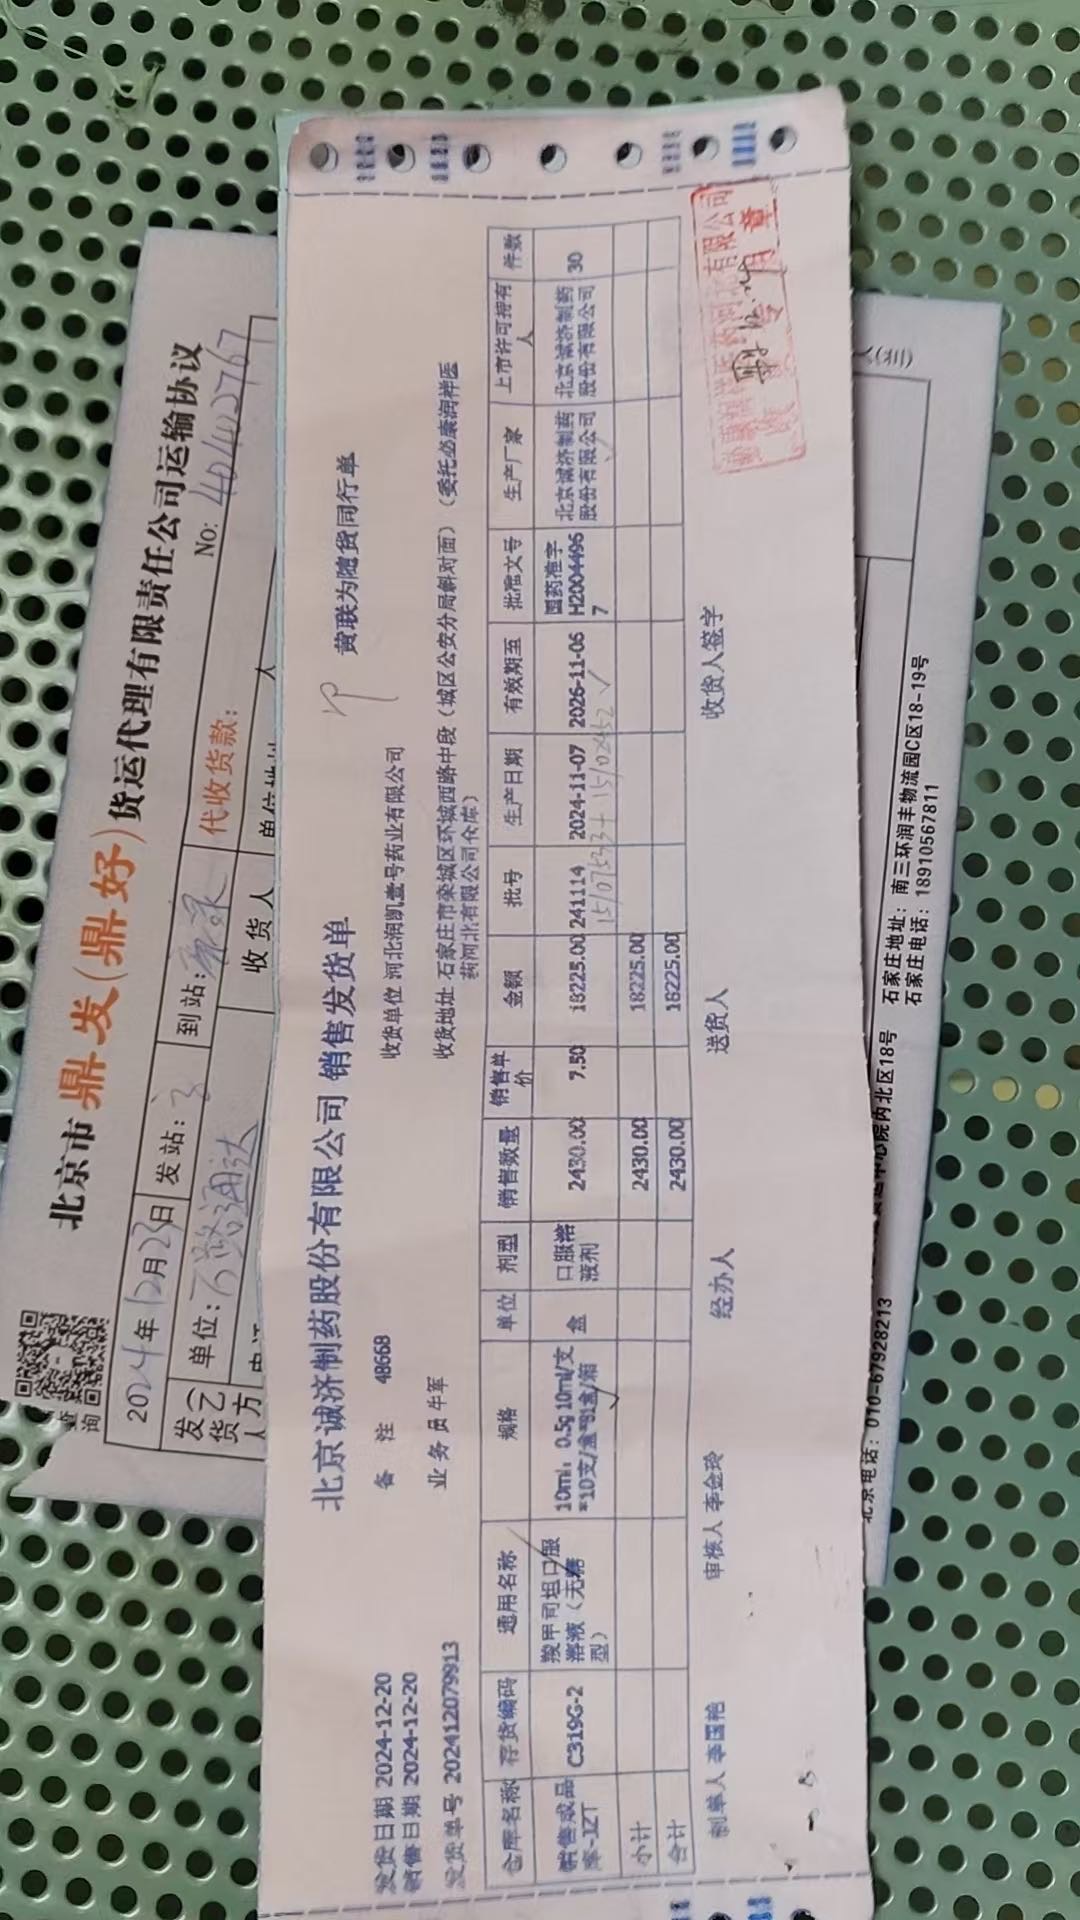 北京市鼎发(鼎好)货运代理有限责任公司运输协议
No: 4042767
2024年12月23日 发站: 到站: 代收货款:
发货人(乙方) 单位: 收货人 单位地址 人
查询
北京诚济制药股份有限公司 销售发货单 黄联为随货同行单
发货日期 2024-12-20 备 注 48668 收货单位 河北润凯壹号药业有限公司
销售日期 2024-12-20
发货单号 202412079913 业 务 员 牛军 收货地址 石家庄市栾城区环城西路中段（城区公安分局斜对面）（委托必康润祥医
药河北有限公司仓库）
仓库名称 存货编码 通用名称 规格 单位 剂型 销售数量 销售单价 金额 批号 生产日期 有效期至 批准文号 生产厂家 上市许可持有人 件数
销售成品库-JZT C319G-2 羧甲司坦口服溶液（无糖型） 10ml：0.5g 10ml/支*10支/盒*81盒/箱 盒 口服溶液剂 2430.00 7.50 18225.00 241114 2024-11-07 2026-11-06 国药准字H20044967 北京诚济制药股份有限公司 北京诚济制药股份有限公司 30
小计 2430.00 18225.00
合计 2430.00 18225.00
制单人 李国艳 审核人 李金玲 经办人 送货人 收货人签字
北京电话: 010-67928213 院内北区18号 石家庄地址: 南三环润丰物流园C区18-19号
石家庄电话: 18910567811